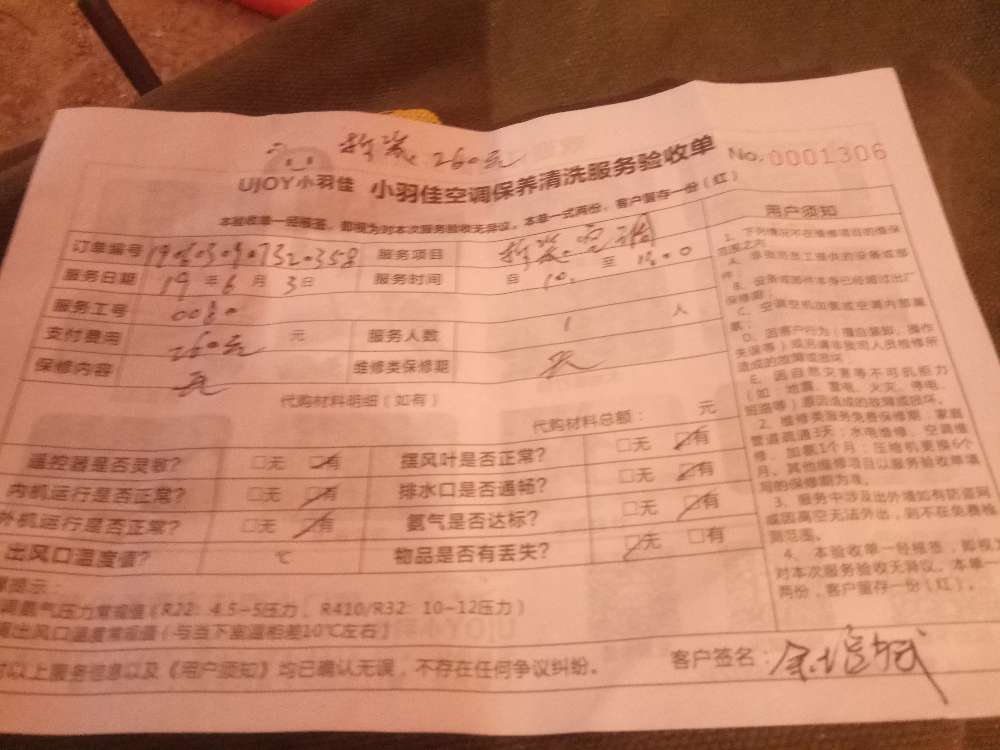 拆装 260元
UJOY小羽佳 小羽佳空调保养清洗服务验收单 No.0001306
本验收单一经签, 即视为对本次服务验收无异议。本单一式两份, 客户留存一份(红)
订单编号 服务项目 拆装
服务日期 19年6月3日 服务时间 自 10. 至
服务工号
支付费用 260元 元 服务人数 1 人
保修内容 无 维修类保修期 无
代购材料明细(如有)
代购材料总额: 元
遥控器是否灵敏? □无 □有 摆风叶是否正常? □无 □有
内机运行是否正常? □无 □有 排水口是否通畅? □无 □有
外机运行是否正常? □无 □有 氨气是否达标? □无 □有
出风口温度值? ℃ 物品是否有丢失? □无 □有
提示:
调氨气压力常规值(R22: 4.5-5压力, R410/R32: 10-12压力)
出风口温度常规值(与当下室温相差10℃左右)
以上服务信息以及《用户须知》均已确认无误, 不存在任何争议纠纷。
客户签名:
用户须知
1、下列情况不在维修项目的维保
范围之内:
A、非我司员工提供的设备或部
件;
B、设备或部件本身已经超过出厂
保修期;
C、空调空机加氨或空调内部漏
氨;
D、因客户行为(擅自装卸、操作
失误等)或另请非我司人员检修所
造成的故障或损坏
E、因自然灾害等不可抗拒力
(如:地震、雷电、火灾、停电、
短路等)原因造成的故障或损坏。
2、维修类服务免费保修期:家庭
管道疏通3天;水电维修、空调维
修、加氨1个月;压缩机更换6个
月。其他维修项目以服务验收单填
写的保修期为准。
3、服务中涉及出外墙如有防盗网
或因高空无法外出,则不在免费检
测范围。
4、本验收单一经签,即视为
对本次服务验收无异议。本单一
两份,客户留存一份(红)。